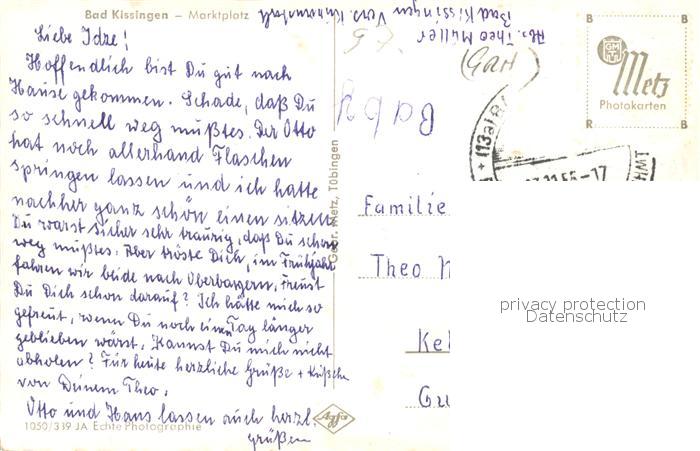 Bad Kissingen – Marktplatz
Abs. Theo Müller
Bad Kissingen Vers. Kuranstalt
Liebe Idze!
Hoffendlich bist Du gut nach
Hause gekommen. Schade, daß Du
so schnell weg mußtes. Der Otto
hat noch allerhand Flaschen
springen lassen und ich hatte
nachher ganz schön einen sitzen
Du warst sicher sehr traurig, daß Du schon
weg mußtes. Aber tröste Dich, im Frühjahr
fahren wir beide nach Oberbayern, freust
Du Dich schon darauf? Ich hätte mich so
gefreut, wenn Du noch einen Tag länger
geblieben wärst. Kannst Du mich nicht
abholen? Für heute herzliche Grüße + Küßche
von Deinem Theo.
Otto und Hans lassen auch herzl.
grüßen
1050/339 JA Echte Photographie
Agfa
Gebr. Metz, Tübingen
(Gart)
B B
GMT
Metz
Photokarten
R B
(13a) BA
55-17
Familie
Theo M
Kel
Gu
privacy protection
Datenschutz